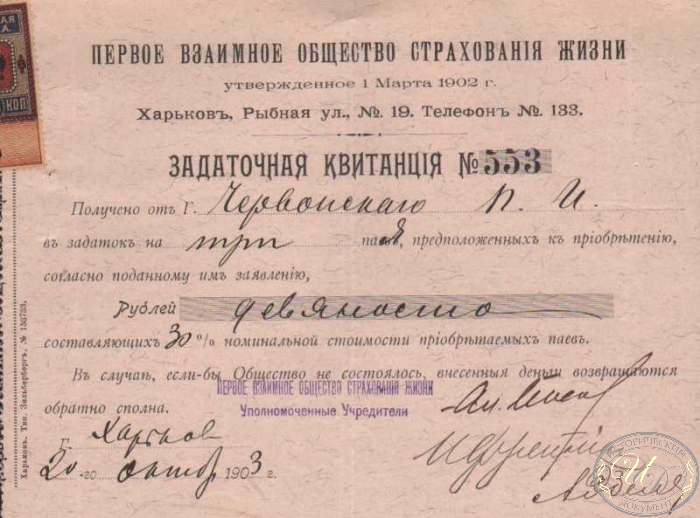 КОП
ПЕРВОЕ ВЗАИМНОЕ ОБЩЕСТВО СТРАХОВАНІЯ ЖИЗНИ
утвержденное 1 Марта 1902 г.
Харьковъ, Рыбная ул., №. 19. Телефонъ №. 133.
ЗАДАТОЧНАЯ КВИТАНЦІЯ № 553
Получено отъ Г. Червонскаго П. И.
въ задатокъ на три пая, предположенныхъ къ пріобрѣтенію,
согласно поданному имъ заявленію,
Рублей девяносто
составляющихъ 30% номинальной стоимости пріобрѣтаемыхъ паевъ.
Въ случаѣ, если-бы Общество не состоялось, внесенныя деньги возвращаются
обратно сполна.
ПЕРВОЕ ВЗАИМНОЕ ОБЩЕСТВО СТРАХОВАНІЯ ЖИЗНИ
Уполномоченные Учредители
Г. Харьков
20-го октяб 1903 г.
Харьковъ. Тип. Зильбербергъ. №
ИСТОРИЧЕСКИЙ
И
ДОКУМЕНТ